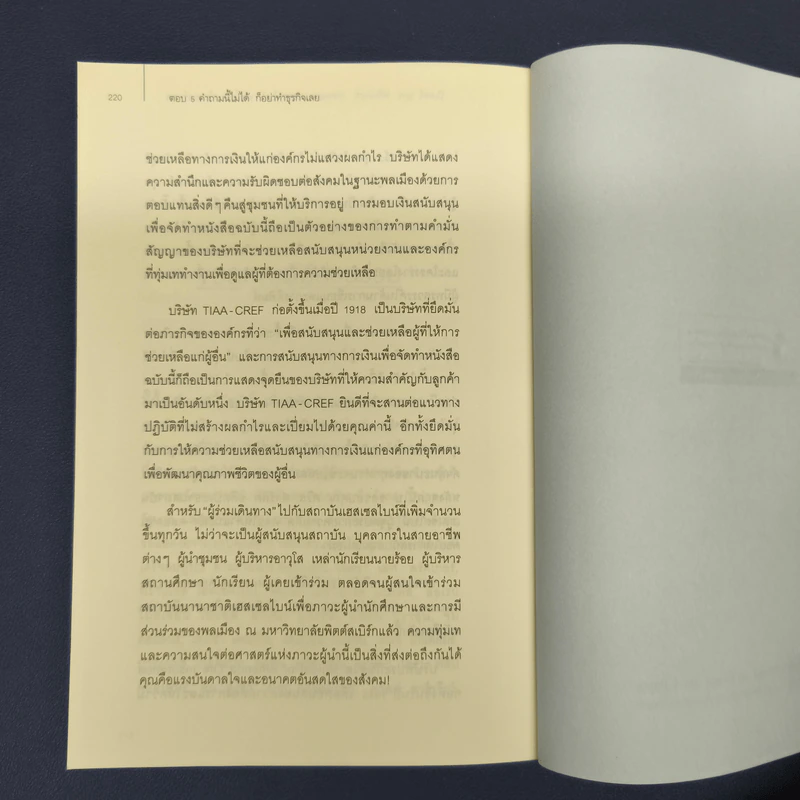 220 ตอบ 5 คำถามนี้ไม่ได้ ก็อย่าทำธุรกิจเลย
ช่วยเหลือทางการเงินให้แก่องค์กรไม่แสวงผลกำไร บริษัทได้แสดง
ความสำนึกและความรับผิดชอบต่อสังคมในฐานะพลเมืองด้วยการ
ตอบแทนสิ่งดีๆ คืนสู่ชุมชนที่ให้บริการอยู่ การมอบเงินสนับสนุน
เพื่อจัดทำหนังสือฉบับนี้ถือเป็นตัวอย่างของการทำตามคำมั่น
สัญญาของบริษัทที่จะช่วยเหลือสนับสนุนหน่วยงานและองค์กร
ที่ทุ่มเททำงานเพื่อดูแลผู้ที่ต้องการความช่วยเหลือ
บริษัท TIAA-CREF ก่อตั้งขึ้นเมื่อปี 1918 เป็นบริษัทที่ยึดมั่น
ต่อภารกิจขององค์กรที่ว่า "เพื่อสนับสนุนและช่วยเหลือผู้ที่ให้การ
ช่วยเหลือแก่ผู้อื่น" และการสนับสนุนทางการเงินเพื่อจัดทำหนังสือ
ฉบับนี้ก็ถือเป็นการแสดงจุดยืนของบริษัทที่ให้ความสำคัญกับลูกค้า
มาเป็นอันดับหนึ่ง บริษัท TIAA-CREF ยินดีที่จะสานต่อแนวทาง
ปฏิบัติที่ไม่สร้างผลกำไรและเปี่ยมไปด้วยคุณค่านี้ อีกทั้งยึดมั่น
กับการให้ความช่วยเหลือสนับสนุนทางการเงินแก่องค์กรที่อุทิศตน
เพื่อพัฒนาคุณภาพชีวิตของผู้อื่น
สำหรับ "ผู้ร่วมเดินทาง" ไปกับสถาบันเฮสเซลไบน์ที่เพิ่มจำนวน
ขึ้นทุกวัน ไม่ว่าจะเป็นผู้สนับสนุนสถาบัน บุคลากรในสายอาชีพ
ต่างๆ ผู้นำชุมชน ผู้บริหารอาวุโส เหล่านักเรียนนายร้อย ผู้บริหาร
สถานศึกษา นักเรียน ผู้เคยเข้าร่วม ตลอดจนผู้สนใจเข้าร่วม
สถาบันนานาชาติเฮสเซลไบน์เพื่อภาวะผู้นำนักศึกษาและการมี
ส่วนร่วมของพลเมือง ณ มหาวิทยาลัยพิตต์สเบิร์กแล้ว ความทุ่มเท
และความสนใจต่อศาสตร์แห่งภาวะผู้นำนี้เป็นสิ่งที่ส่งต่อถึงกันได้
คุณคือแรงบันดาลใจและอนาคตอันสดใสของสังคม!